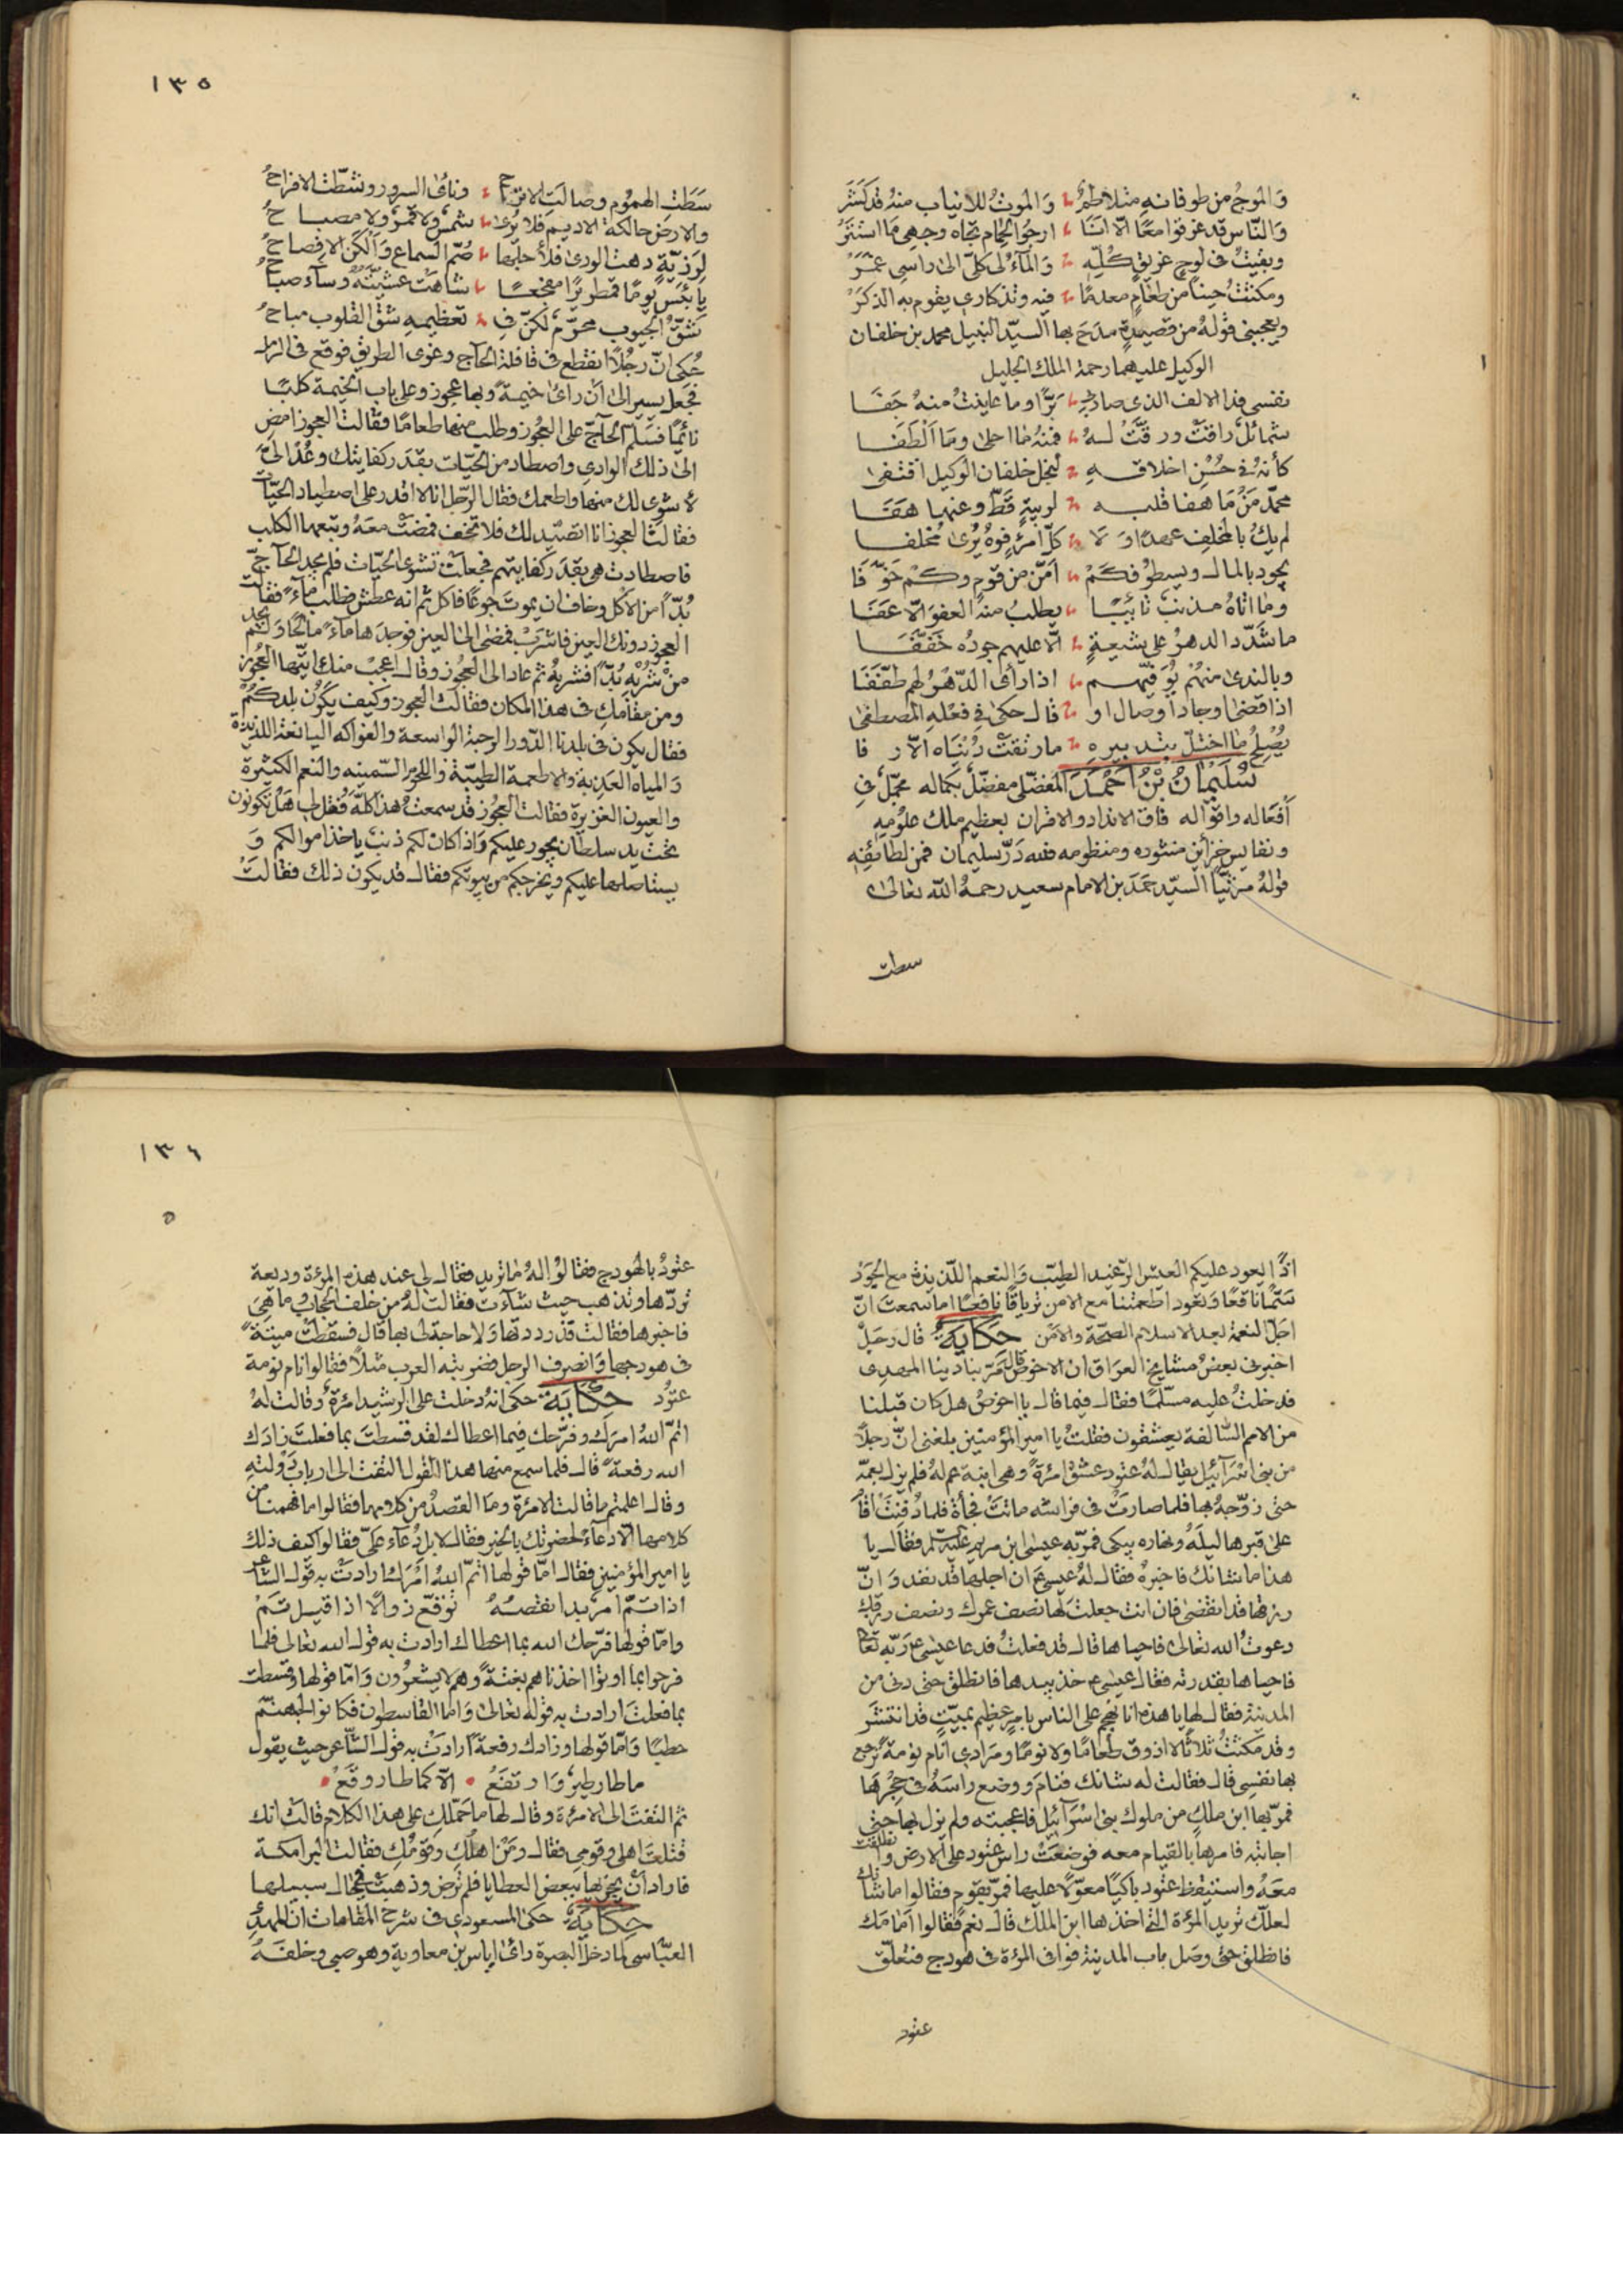 وَالموجُ من طوفانه متلاطمٌ وَالموتُ للانياب منهُ قد كَشَرْ
وَالنّاس قد غرقوا معًا الّا انَنَا ارجُو الحِمام تجاه وجهي مَا استَتَرْ
وبقيتُ في لوحٍ غريقٍ كُلّه وَالمآءُ لى كلّى الى راسى غَمَرْ
ومكثتُ حينًا من طعَامٍ معدمًا فيه وتذكارى يقوم به الذكَرْ
ويعجبنى قولهُ من قصيدةٍ مدَحَ بها السيّد النبيل محمد بن خلفان
الوكيل عليهما رحمة الملك الجليل
نفسى فدا الالف الذى صادنى بَرًّا وما عاينتُ منهُ جَفَا
شمائلٌ راقتْ ورقّتْ لهُ منهُ مَا احلى ومَا اَلْطَفَا
كأنهُ في حُسْنِ اخلاقه لنجل خلفان الوكيل اقتفى
محمّد مَنْ مَا هفا قلبه لريبةٍ قَطّ وعنها هَفَا
لم يكُ بالمخلِف عهدًا وَلا كلّ امرئٍ فوهُ يُرى مُخلفا
يجود بالمال ويسطو فكَمْ اَمّن من قومٍ وكمْ خَوّفَا
ومَا اتاهُ مذنبٌ تائبًا يطلبُ منهُ العفوَ الّا عَفَا
ما شَدّد الدهرُ على شيعةٍ الّا عليهم جودُه خَفّفَا
وبالندى منهُمْ يُوَفّيهم اذا رأى الدّهرُ لهم طفّفَا
اذا قضى اوجاد اوصال او قال حكى في فعله المصطفى
يُصْلِحُ ما اختلّ بتدبيره ما رتقتْ دُنيَاه الّا رفا
سُلَيْمَانُ بْنُ اَحْمَدَ المفضّلى مفضّلٌ بكماله مجمّلٌ في
اَفْعَاله واقوَاله فاق الانداد والاقران بعظيم ملك علومه
ونفايس خزائن منثوره ومنظومه فلله دَرّ سليمان فمن لطائفه
قولهُ مرثيًا السيّد حمَد بن الامام سعيد رحمهُ اللّه تعالى
سطت
١٣٥
سَطَتِ الهمُوم وصالَتِ الاتراحُ ونأى السرور وشطّت الافراحُ
والارض حالكة الاديم فلا يُرى شمسٌ ولا قمرٌ ولا مصباحُ
لِرَزيّةٍ دهت الورى فلأجلها صُمّ السماع وَاَلْكَن الافصاحُ
يا بئس يومًا قمطريرًا مفجعًا شاهت عشيّتُهُ وسآء صباحُ
شقّ الجيوب محرّمٌ لكنّ في تعظيمه شقّ القلوب مباحُ
حُكى انّ رجُلًا انقطع في قافلة الحاج وغوى الطريق فوقع في الرمل
فجعل يسير الى اَن رأى خيمةً وبها عجوز وعلى باب الخيمة كلبًا
نائمًا فسَلم الحاجّ على العجُوز وطلب منها طعامًا فقالت العجوز امض
الى ذلك الوادى واصطاد من الحيّات بقدَر كفايتك وعُدْ الىّ
لأشوى لك منها واطعمك فقال الرّجل انا لا اقدر على اصطياد الحيّات
فقالت العجوز انا اتصيّد لك فلا تخف فمضتْ معَهُ وتبعهما الكلب
فاصطادت هى بقدَر كفايتهم فجعلتْ تشوى الحيّات فلم يجد الحاجّ
بُدّاً من الاكل وخاف ان يموت جوعًا فاكل ثم انه عطش فطلب مآءً فقالت
العجوز دونك العين فاشرب فمضى الى العين فوجدَها مآءً مالحًا ولم يجد
منْ شُرْبه بُدّاً فشربهُ ثم عاد الى العجُوز وقال اعجب منك ايتها العجُوز
ومن مقامك في هذا المكان فقالت العجوز وكيف يكون بلدكُمْ
فقال يكون في بلدنا الدّور الرحبة الواسعة والفواكه اليانعة اللذيذة
وَالمياه العذبة والاطعمة الطيّبة واللحوم السّمينه والنعم الكثيرة
والعيون الغزيرة فقالت العجُوز قد سمعتُ هذا كلّه فقل لى هَلْ تكونون
تحت يد سلطان يجور عليكم وَاذا كان لكم ذنبٌ ياخذ اموالكم وَ
يستاصلها عليكم ويخرجكم من بيوتكم فقال قد يكون ذلك فقالَتْ
اذًا يعود عليكم العيش الرّغيد الطيّب وَالنعم اللّذيذة مع الجَوْر
سَمًّا ناقعًا وَتعود اطعمتنا مع الامن ترياقًا نافعًا اما سمعتَ انّ
اجلّ النعمة بعد الاسلام الصحّة والامَن حكاية قال رَجلٌ
اخبرنى بعضُ مشايخ العرَاق ان الاحوص قال مَرّ بنا دينا المهدى
فدخلتُ عليه مسلّمًا فقال فيما قال يا احوصُ هل كان قبلنا
من الامم السّالفة يعشقون فقلتُ يا امير المؤمنين بلغنى انّ رجلًا
من بنى اسْرَآئيل يقال لهُ عنود عشق امرئةً وهى ابنة عم لهُ فلم يزل بعمّه
حتى زوّجهُ بها فلما صارتْ في فراشه ماتتْ فجأةً فلما دُفِنَتْ اقَامَ
على قبرها ليلَهُ ونهاره يبكى فمرّ به عيسى ابن مريم عليه السّلم فقال يا
هذا ما شانك فاخبرهُ فقال لهُ عيسىٰ ان اجلها قد نفد وَانّ
رزقها قد انقضى فان انت جعلتَ لها نصف عمرك ونصف رزقك
دعوتُ الله تعالى فاحياها قال قد فعلتُ فدعا عيسى ع رَبّه تعا
فاحياها بقدرته فقال عيسى ع خذ بيدها فانطلق حتى دنى من
المدينة فقال لها يا هذه انا نهجم على الناس بامرٍ عظيم بميّتٍ قد انتشرَ
وقد مكثتُ ثلاثًا لا اذوق طعَامًا ولا نومًا ومَرَادى اَنام نومة تُرجع
بها نفسى قال فقالت له شانك فنامَ ووضع راسَهُ في حِجْرهَا
فمرّ بها ابن ملكٍ من ملوك بنى اسْرَآئيل فاعجبته ولم يزل بها حتى
اجابته فامرها بالقيام معه فوضعَتْ راس عنود على الارض وانطلقت
معَهُ واستيقظ عنود باكيًا معوّلًا عليها فمرّ بقوم فقالوا ما شانك
لعلّك تريد المرءة التى اخذها ابن الملك قال نعم فقالوا اَمَامَك
فانطلق حتى وصَل باب المدينة فوافى المرءة في هودج فتعلّق
عنود
١٣٦
عنودُ بالهودج فقالوا لهُ مَا تريد فقال لى عند هذه المرءة وديعة
تردّها وتذهب حيث شآءَت فقالت لهُ من خلف الحجاب ما هِىَ
فاخبرها فقالت قد رددتها وَلا حاجة لى بها قال فسقطَتْ ميتةً
في هودجها وَانصرف الرجل فضربته العرب مثلًا فقالوا نام نومة
عنُود حكاية حكى انهُ دخلت على الرشيد امرئةٌ وقالت لهُ
اتمّ اللّهُ امرَك وفرّحك فيما اعطاك لقد قسطتَ بما فعلتَ زادَك
الله رفعةً قال فلما سمع منها هذا القول التفت الى ارباب دَوْلته
وقال اعلمتم ما قالت الامرئة ومَا القصدُ من كلامها فقالوا ما فهمنا من
كلامها الّا دعاءً لحضرتك بالخير فقال لا بل دُعَآء علىّ فقالوا كيف ذلك
يا امير المؤمنين فقال امّا قولها اتمّ اللّهُ امْرَك ارادتْ به قول الشاعر
اذا تمّ امرٌ بدا نقصُهُ توقّع زوالًا اذا قيل تَمْ
وامّا قولها فرّحك الله بما اعطاك ارادت به قول الله تعالى فلما
فرحوا بما اوتوا اخذناهم بغتةً وهم لا يشعرون وَامّا قولها وقسطت
بما فعلتَ ارادت به قوله تعالى وَامّا القاسطون فكانوا لجهنّم
حطبًا وَامّا قولها وزادك رفعةً ارادَتْ به قول الشّاعر حيث يقول
ما طار طيرٌ وَارتفَعْ الّا كما طار وقَعْ
ثم التفتَ الى الامرئة وقال لها ما حَمَلكِ على هذا الكلام قالت انك
قتلتَ اهلى وقومى فقال ومَنْ اهلُكِ وقومُكِ فقالت البرامكة
فارادَ ان يجزيها ببعض العطايا فلم ترض وذهبَتْ في حَال سبيلها
حكاية حكى المسعودى في شرح المقامات ان المهدى
العبّاسى لما دخل البصرة رأى اياس بن معاوية وهو صبى وخلفَهُ